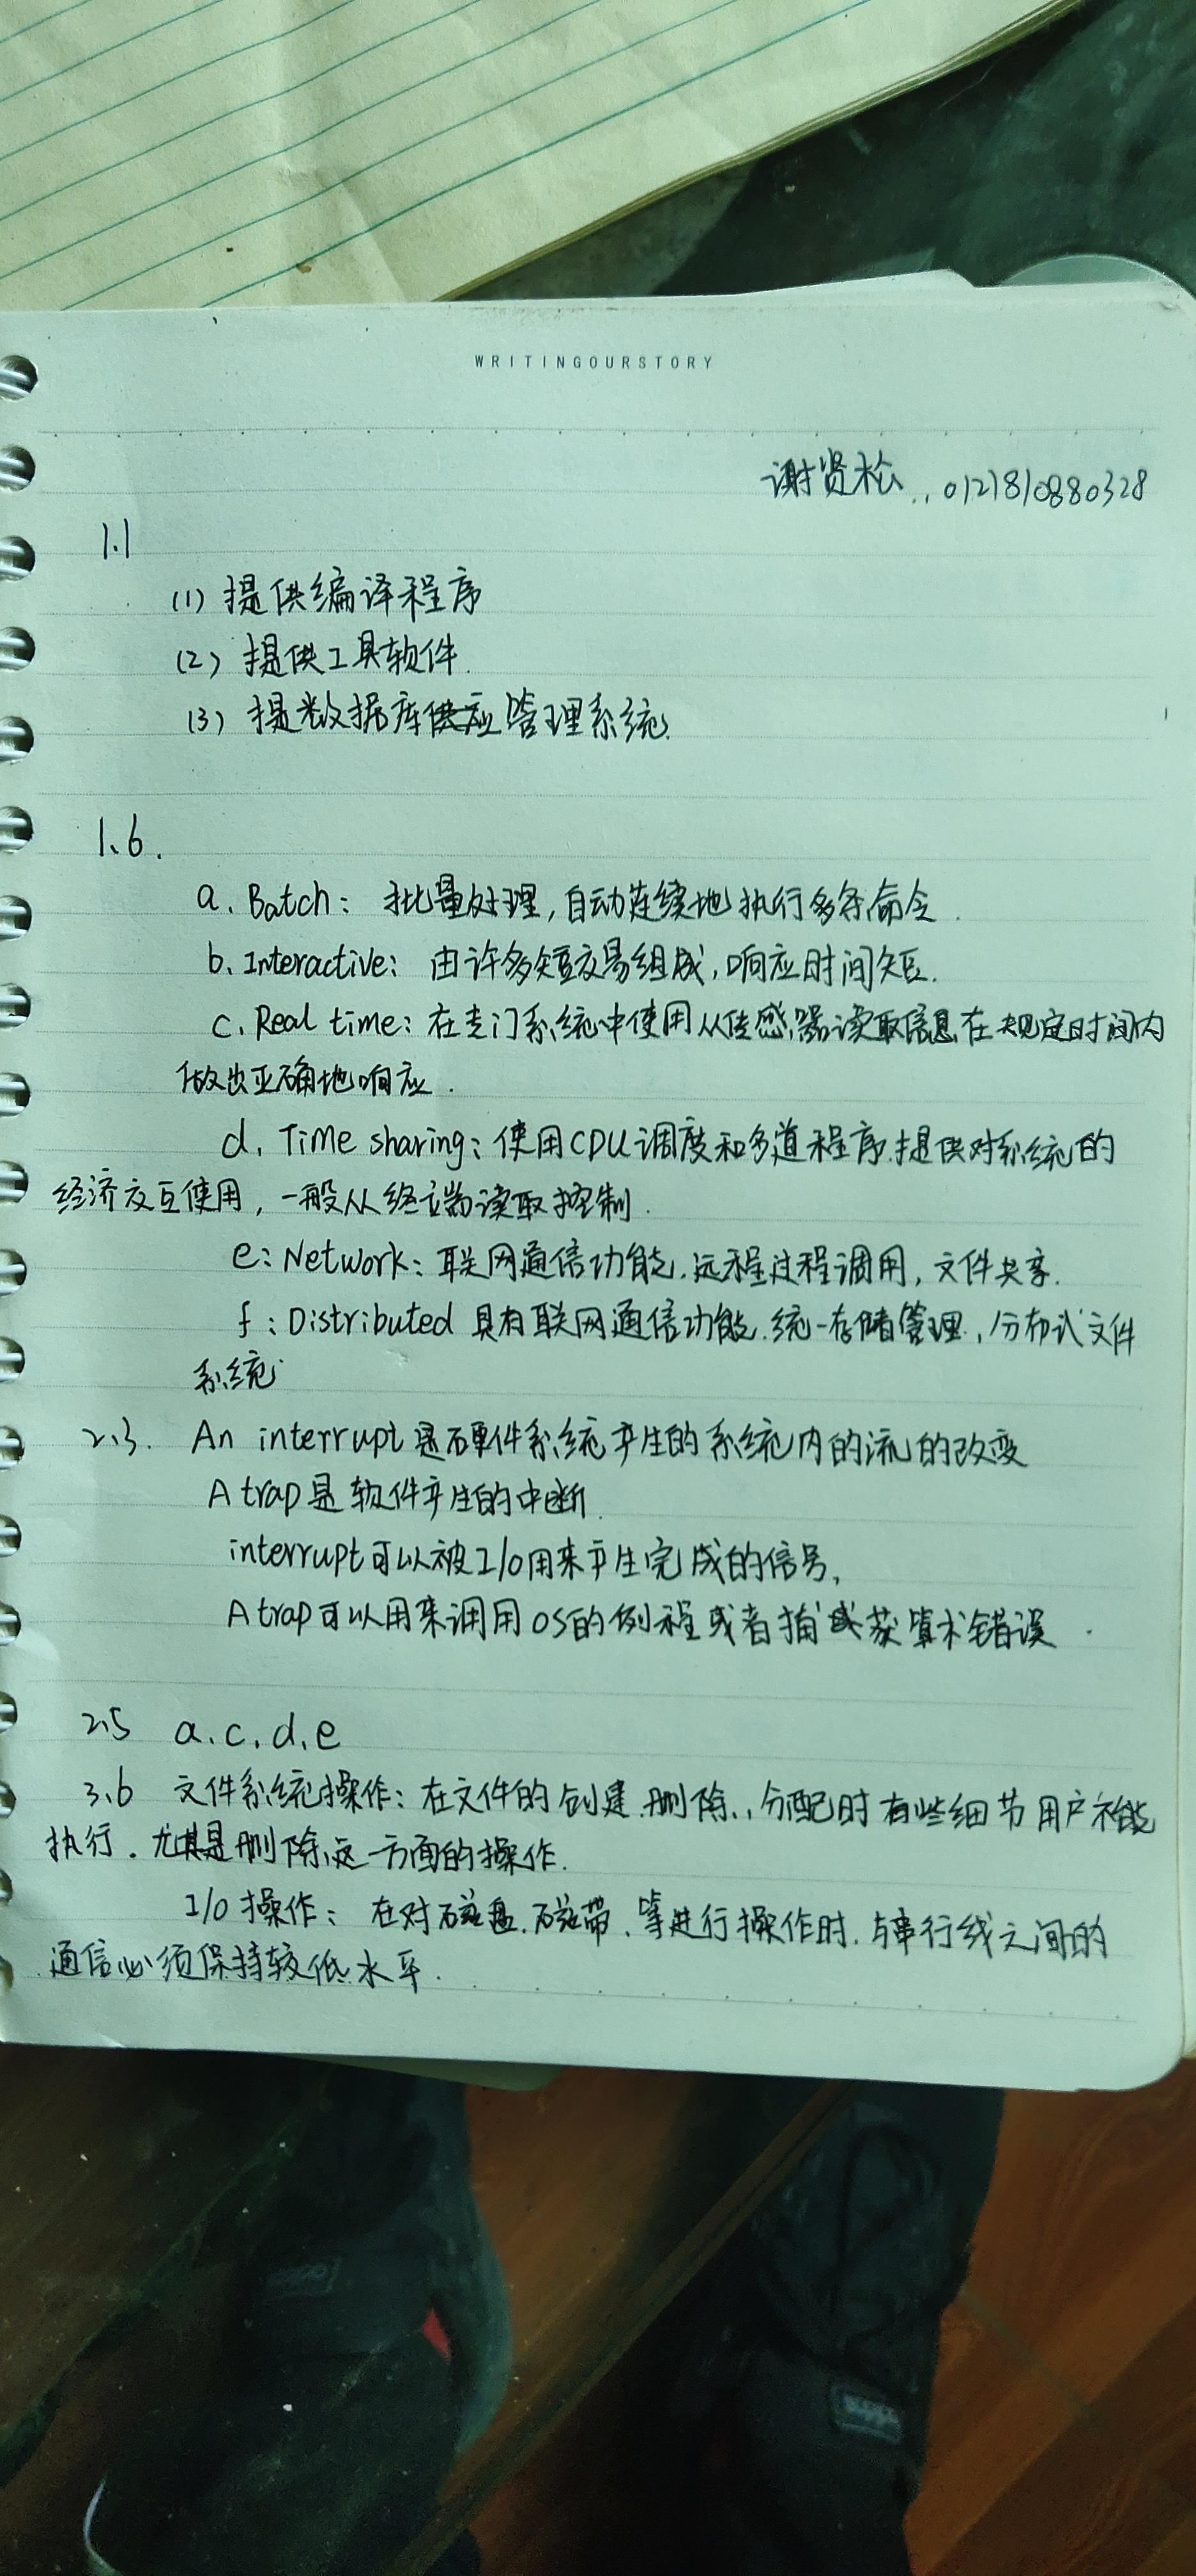 WRITINGOURSTORY
谢贤松 .. 0121810880328
1.1
(1) 提供编译程序
(2) 提供工具软件.
(3) 提数据库供应管理系统.
1.6.
a. Batch: 批量处理, 自动连续地执行多条命令.
b. Interactive: 由许多短交易组成, 响应时间短.
c. Real time: 在专门系统中使用从传感器读取信息,在规定时间内
做出正确地响应.
d. Time sharing: 使用CPU调度和多道程序.提供对系统的
经济交互使用, 一般从终端读取控制.
e: Network: 联网通信功能.远程过程调用, 文件共享.
f: Distributed 具有联网通信功能.统一存储管理, 分布式文件
系统
2.3. An interrupt是硬件系统产生的系统内的流的改变
A trap是软件产生的中断.
interrupt可以被I/O用来产生完成的信号,
A trap可以用来调用OS的例程或者捕获算术错误.
2.5 a.c.d.e
3.6 文件系统操作: 在文件的创建.删除., 分配时有些细节用户不能
执行. 尤其是删除这一方面的操作.
I/O操作: 在对磁盘.磁带.等进行操作时.与串行线之间的
通信必须保持较低水平.